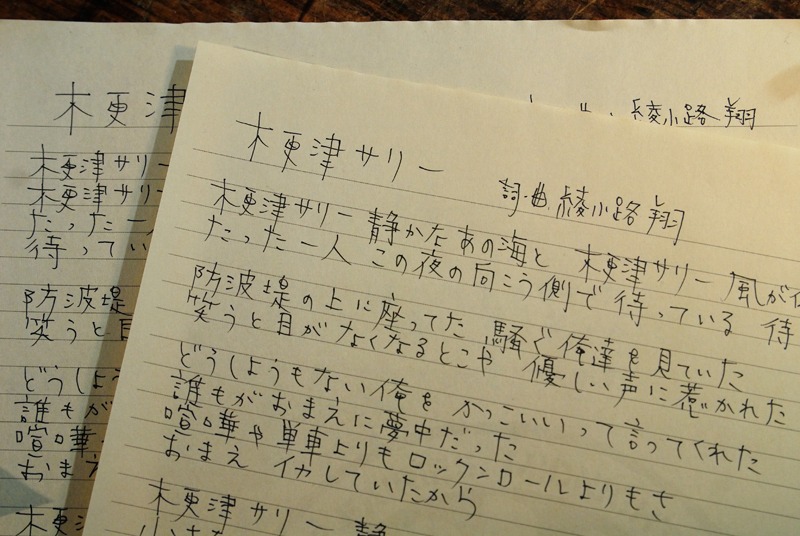 木更津
綾小路 翔
木更津サリ
木更津サリ
たった一人
待ってい
防波堤
笑うと目
どうしよう
誰もが
喧嘩
おまえ
木更津
木更津サリー
詞・曲 綾小路 翔
木更津サリー 静かなあの海と 木更津サリー 風が
たった一人 この夜の向こう側で 待っている 待
防波堤の上に座ってた 騒ぐ俺達を見ていた
笑うと目がなくなるとこや 優しい声に惹かれた
どうしようもない俺を かっこいいって言ってくれた
誰もがおまえに夢中だった
喧嘩や単車よりもロックンロールよりもさ
おまえ イカしていたから
木更津サリー 静